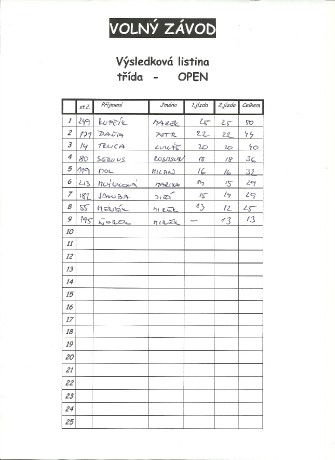 VOLNÝ ZÁVOD
Výsledková listina
třída - OPEN
st.č. Příjmení Jméno 1.jízda 2.jízda Celkem
1 249 MAREK 25 25 50
2 171 PETR 22 22 44
3 14 TRNCA LUKÁŠ 20 20 40
4 80 18 18 36
5 119 MOL MILAN 16 16 32
6 213 MLÝNKOVÁ MARTINA 14 15 29
7 182 JIŘÍ 15 14 29
8 55 MIREK 13 12 25
9 195 MIREK - 13 13
10
11
12
13
14
15
16
17
18
19
20
21
22
23
24
25